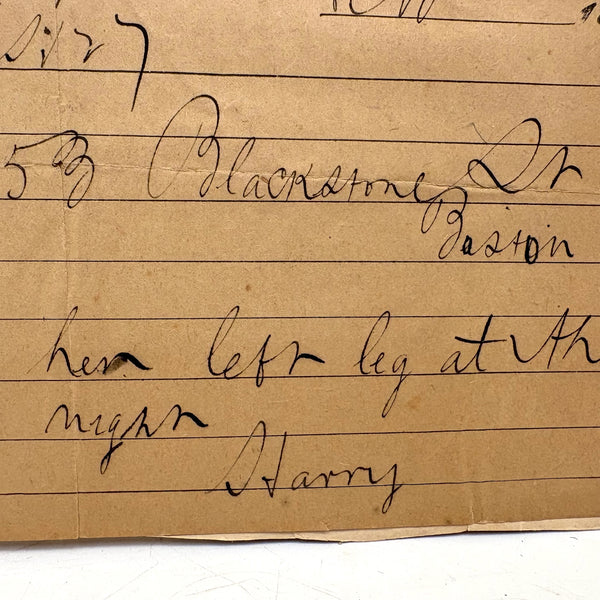 53 Blackstone St
Boston
her left leg at th
night
Harry